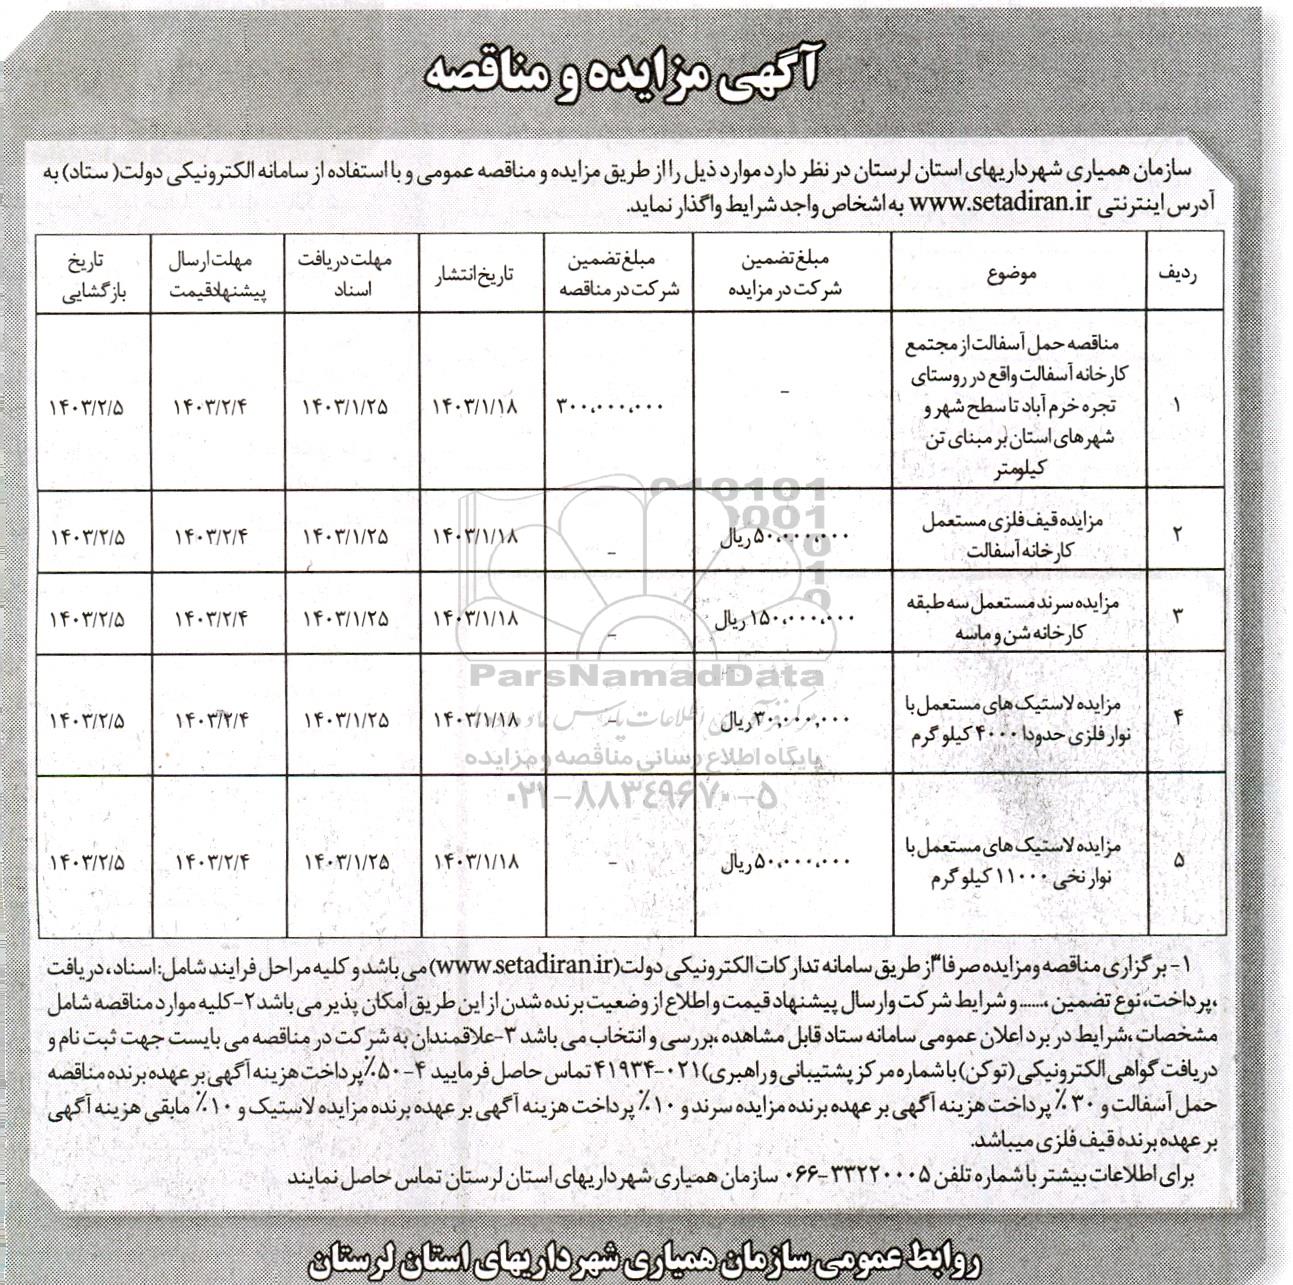 آگهی مزایده و مناقصه
سازمان همیاری شهرداریهای استان لرستان در نظر دارد موارد ذیل را از طریق مزایده و مناقصه عمومی و با استفاده از سامانه الکترونیکی دولت( ستاد) به
آدرس اینترنتی www.setadiran.ir به اشخاص واجد شرایط واگذار نماید.
ردیف | موضوع | مبلغ تضمین شرکت در مزایده | مبلغ تضمین شرکت در مناقصه | تاریخ انتشار | مهلت دریافت اسناد | مهلت ارسال پیشنهاد قیمت | تاریخ بازگشایی
۱ | مناقصه حمل آسفالت از مجتمع کارخانه آسفالت واقع در روستای تجره خرم آباد تا سطح شهر و شهرهای استان بر مبنای تن کیلومتر | - | ۳۰۰،۰۰۰،۰۰۰ | ۱۴۰۳/۱/۱۸ | ۱۴۰۳/۱/۲۵ | ۱۴۰۳/۲/۴ | ۱۴۰۳/۲/۵
۲ | مزایده قیف فلزی مستعمل کارخانه آسفالت | ۵۰،۰۰۰،۰۰۰ ریال | - | ۱۴۰۳/۱/۱۸ | ۱۴۰۳/۱/۲۵ | ۱۴۰۳/۲/۴ | ۱۴۰۳/۲/۵
۳ | مزایده سرند مستعمل سه طبقه کارخانه شن و ماسه | ۱۵۰،۰۰۰،۰۰۰ ریال | - | ۱۴۰۳/۱/۱۸ | ۱۴۰۳/۱/۲۵ | ۱۴۰۳/۲/۴ | ۱۴۰۳/۲/۵
۴ | مزایده لاستیک های مستعمل با نوار فلزی حدودا ۴۰۰۰ کیلو گرم | ۳۰،۰۰۰،۰۰۰ ریال | - | ۱۴۰۳/۱/۱۸ | ۱۴۰۳/۱/۲۵ | ۱۴۰۳/۲/۴ | ۱۴۰۳/۲/۵
۵ | مزایده لاستیک های مستعمل با نوار نخی ۱۱۰۰۰ کیلو گرم | ۵۰،۰۰۰،۰۰۰ ریال | - | ۱۴۰۳/۱/۱۸ | ۱۴۰۳/۱/۲۵ | ۱۴۰۳/۲/۴ | ۱۴۰۳/۲/۵
ParsNamadData
پایگاه اطلاع رسانی مناقصه و مزایده
۰۲۱-۸۸۳۴۹۶۷۰-۵
۱- برگزاری مناقصه ومزایده صرفا" از طریق سامانه تدارکات الکترونیکی دولت(www.setadiran.ir) می باشد و کلیه مراحل فرایند شامل: اسناد، دریافت
،پرداخت، نوع تضمین ،...... و شرایط شرکت وارسال پیشنهاد قیمت و اطلاع از وضعیت برنده شدن از این طریق امکان پذیر می باشد ۲-کلیه موارد مناقصه شامل
مشخصات ،شرایط در برد اعلان عمومی سامانه ستاد قابل مشاهده ،بررسی و انتخاب می باشد ۳-علاقمندان به شرکت در مناقصه می بایست جهت ثبت نام و
دریافت گواهی الکترونیکی (توکن) با شماره مرکز پشتیبانی و راهبری)۰۲۱-۴۱۹۳۴ تماس حاصل فرمایید ۴-۵۰٪پرداخت هزینه آگهی بر عهده برنده مناقصه
حمل آسفالت و ۳۰٪ پرداخت هزینه آگهی بر عهده برنده مزایده سرند و ۱۰٪ پرداخت هزینه آگهی بر عهده برنده مزایده لاستیک و ۱۰٪ مابقی هزینه آگهی
بر عهده برنده قیف فلزی میباشد.
برای اطلاعات بیشتر با شماره تلفن ۳۳۲۲۰۰۰۵-۰۶۶ سازمان همیاری شهرداریهای استان لرستان تماس حاصل نمایند
روابط عمومی سازمان همیاری شهرداریهای استان لرستان